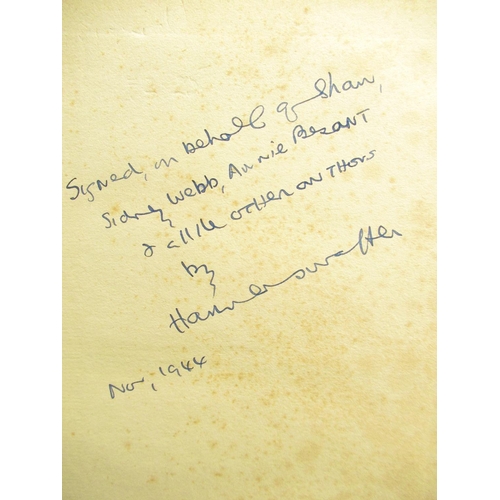 Signed, on behalf of Shaw,
Sidney Webb, Annie Besant
& all the other authors
by
Hannen Swaffer
Nov, 1944